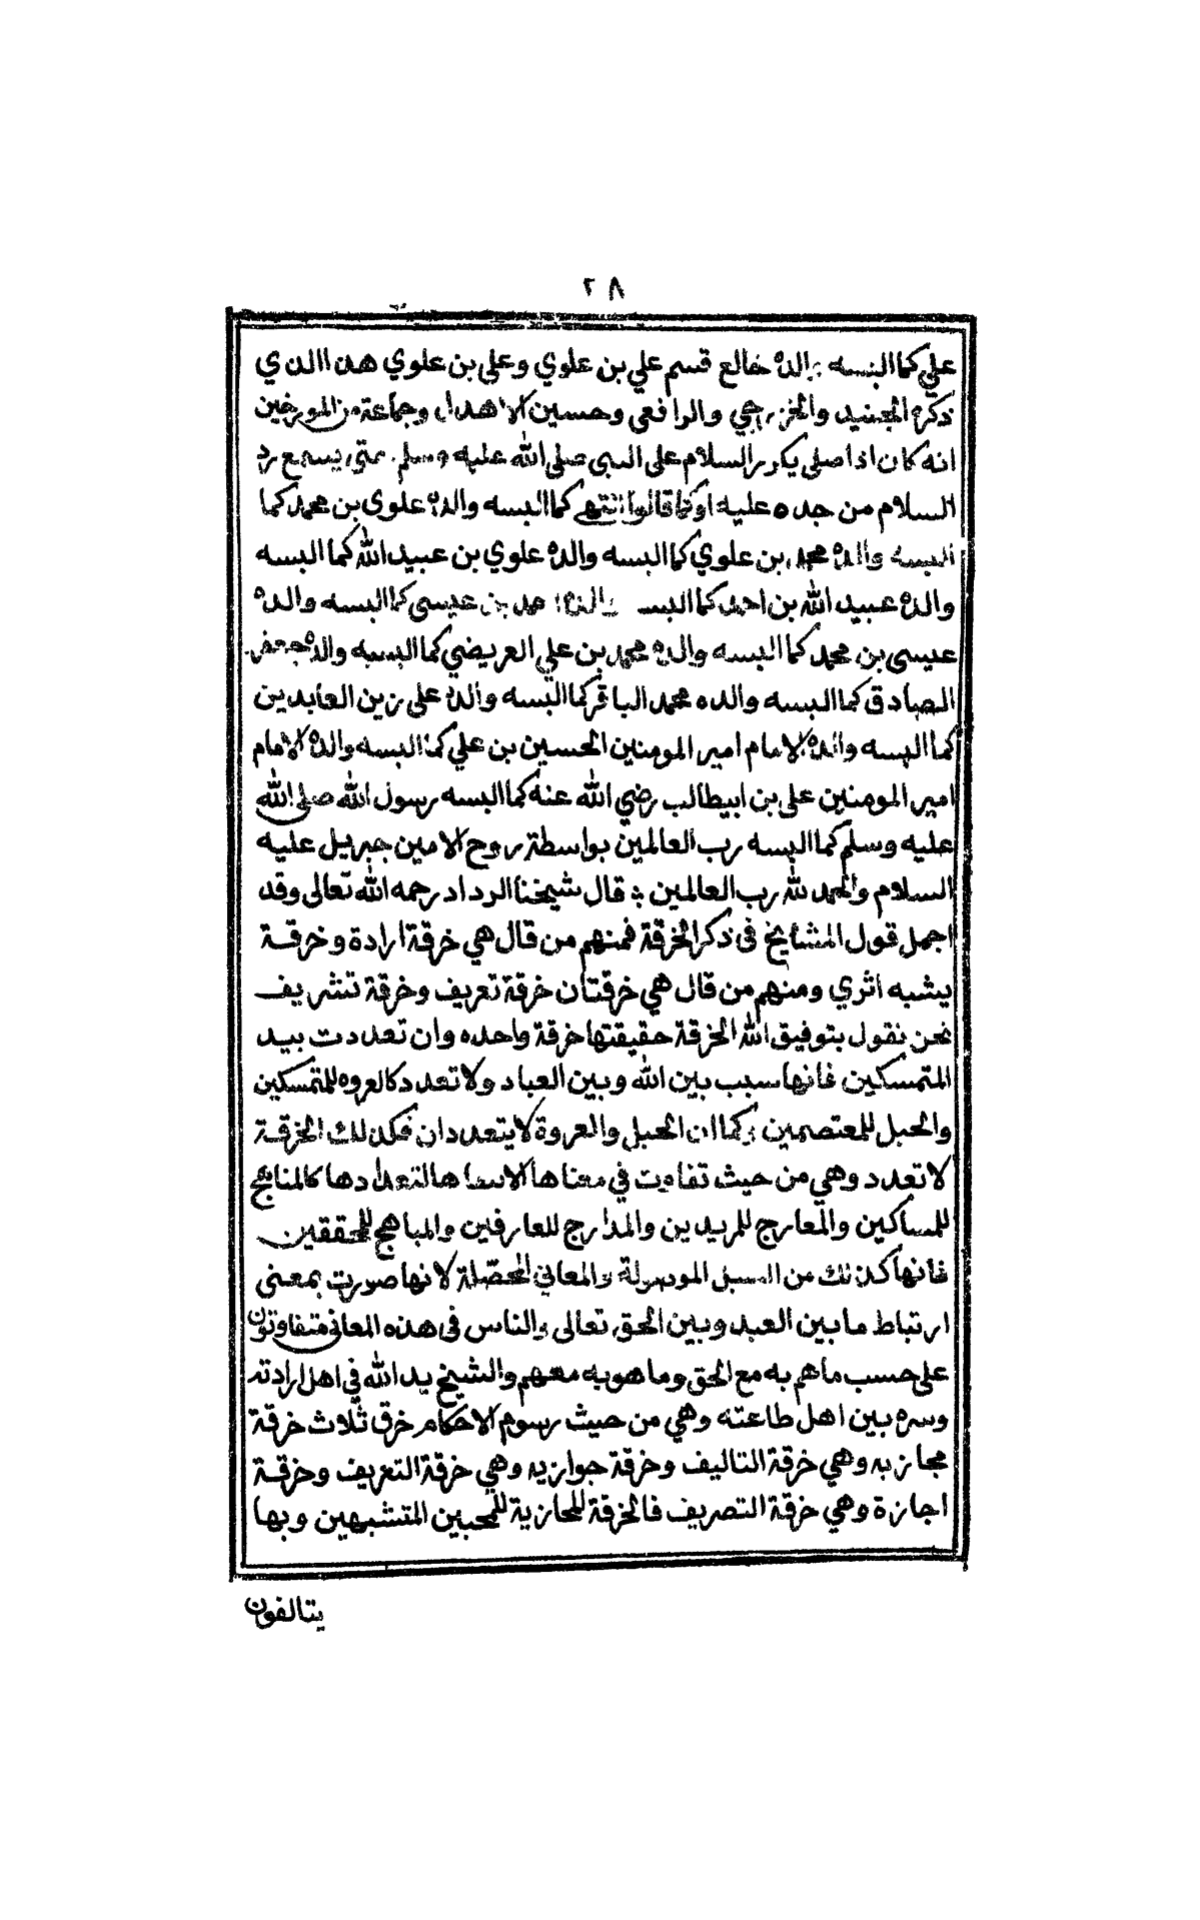 ٢٨
علي كما البسه والده خالع قسم علي بن علوي وعلي بن علوي هذا الذي
ذكره الجنيد والخزرجي والرافعي وحسين الاهدل وجماعة من المورخين
انه كان اذا صلى يكرر السلام على النبي صلى الله عليه وسلم متى يسمع رد
السلام من جده عليه او كما قالوا انتهى كما البسه والده علوي بن محمد كما
البسه والده محمد بن علوي كما البسه والده علوي بن عبيد الله كما البسه
والده عبيد الله بن احمد كما البسه والده احمد بن عيسى كما البسه والده
عيسى بن محمد كما البسه والده محمد بن علي العريضي كما البسه والده جعفر
الصادق كما البسه والده محمد الباقر كما البسه والده على زين العابدين
كما البسه والده الامام امير المومنين الحسين بن علي كما البسه والده الامام
امير المومنين على بن ابيطالب رضي الله عنه كما البسه رسول الله صلى الله
عليه وسلم كما البسه رب العالمين بواسطة روح الامين جبريل عليه
السلام والحمد لله رب العالمين ؛ قال شيخنا الرداد رحمه الله تعالى وقد
اجمل قول المشايخ فى ذكر الخرقة فمنهم من قال هي خرقة ارادة وخرقة
يشبه اثري ومنهم من قال هي خرقتان خرقة تعريف وخرقة تشريف
نحن نقول بتوفيق الله الخرقة حقيقتها خرقة واحده وان تعددت بيد
المتمسكين فانها سبب بين الله وبين العباد ولا تعدد كالعروه للمتمسكين
والحبل للمعتصمين وكما ان الحبل والعروة لا يتعددان فكذلك الخرقة
لا تعدد وهي من حيث تفاوت في معناها لا تعدادها كالمناهج
للمساكين والمعارج للمريدين والمدارج للعارفين والمباهج للمحققين
فانها كذلك من السبل الموصولة والمعاني المحصّلة لانها صورت بمعنى
ارتباط ما بين العبد وبين الحق تعالى والناس فى هذه المعانى متفاوتون
على حسب ما هم به مع الحق وما هو به معهم والشيخ يد الله في اهل ارادته
وسره بين اهل طاعته وهي من حيث رسوم الاحكام خرق ثلاث خرقة
مجازيه وهي خرقة التاليف وخرقة جوازيه وهي خرقة التعريف وخرقة
اجازة وهي خرقة التصريف فالخرقة المجازية للمحبين المتشبهين وبها
يتالفون